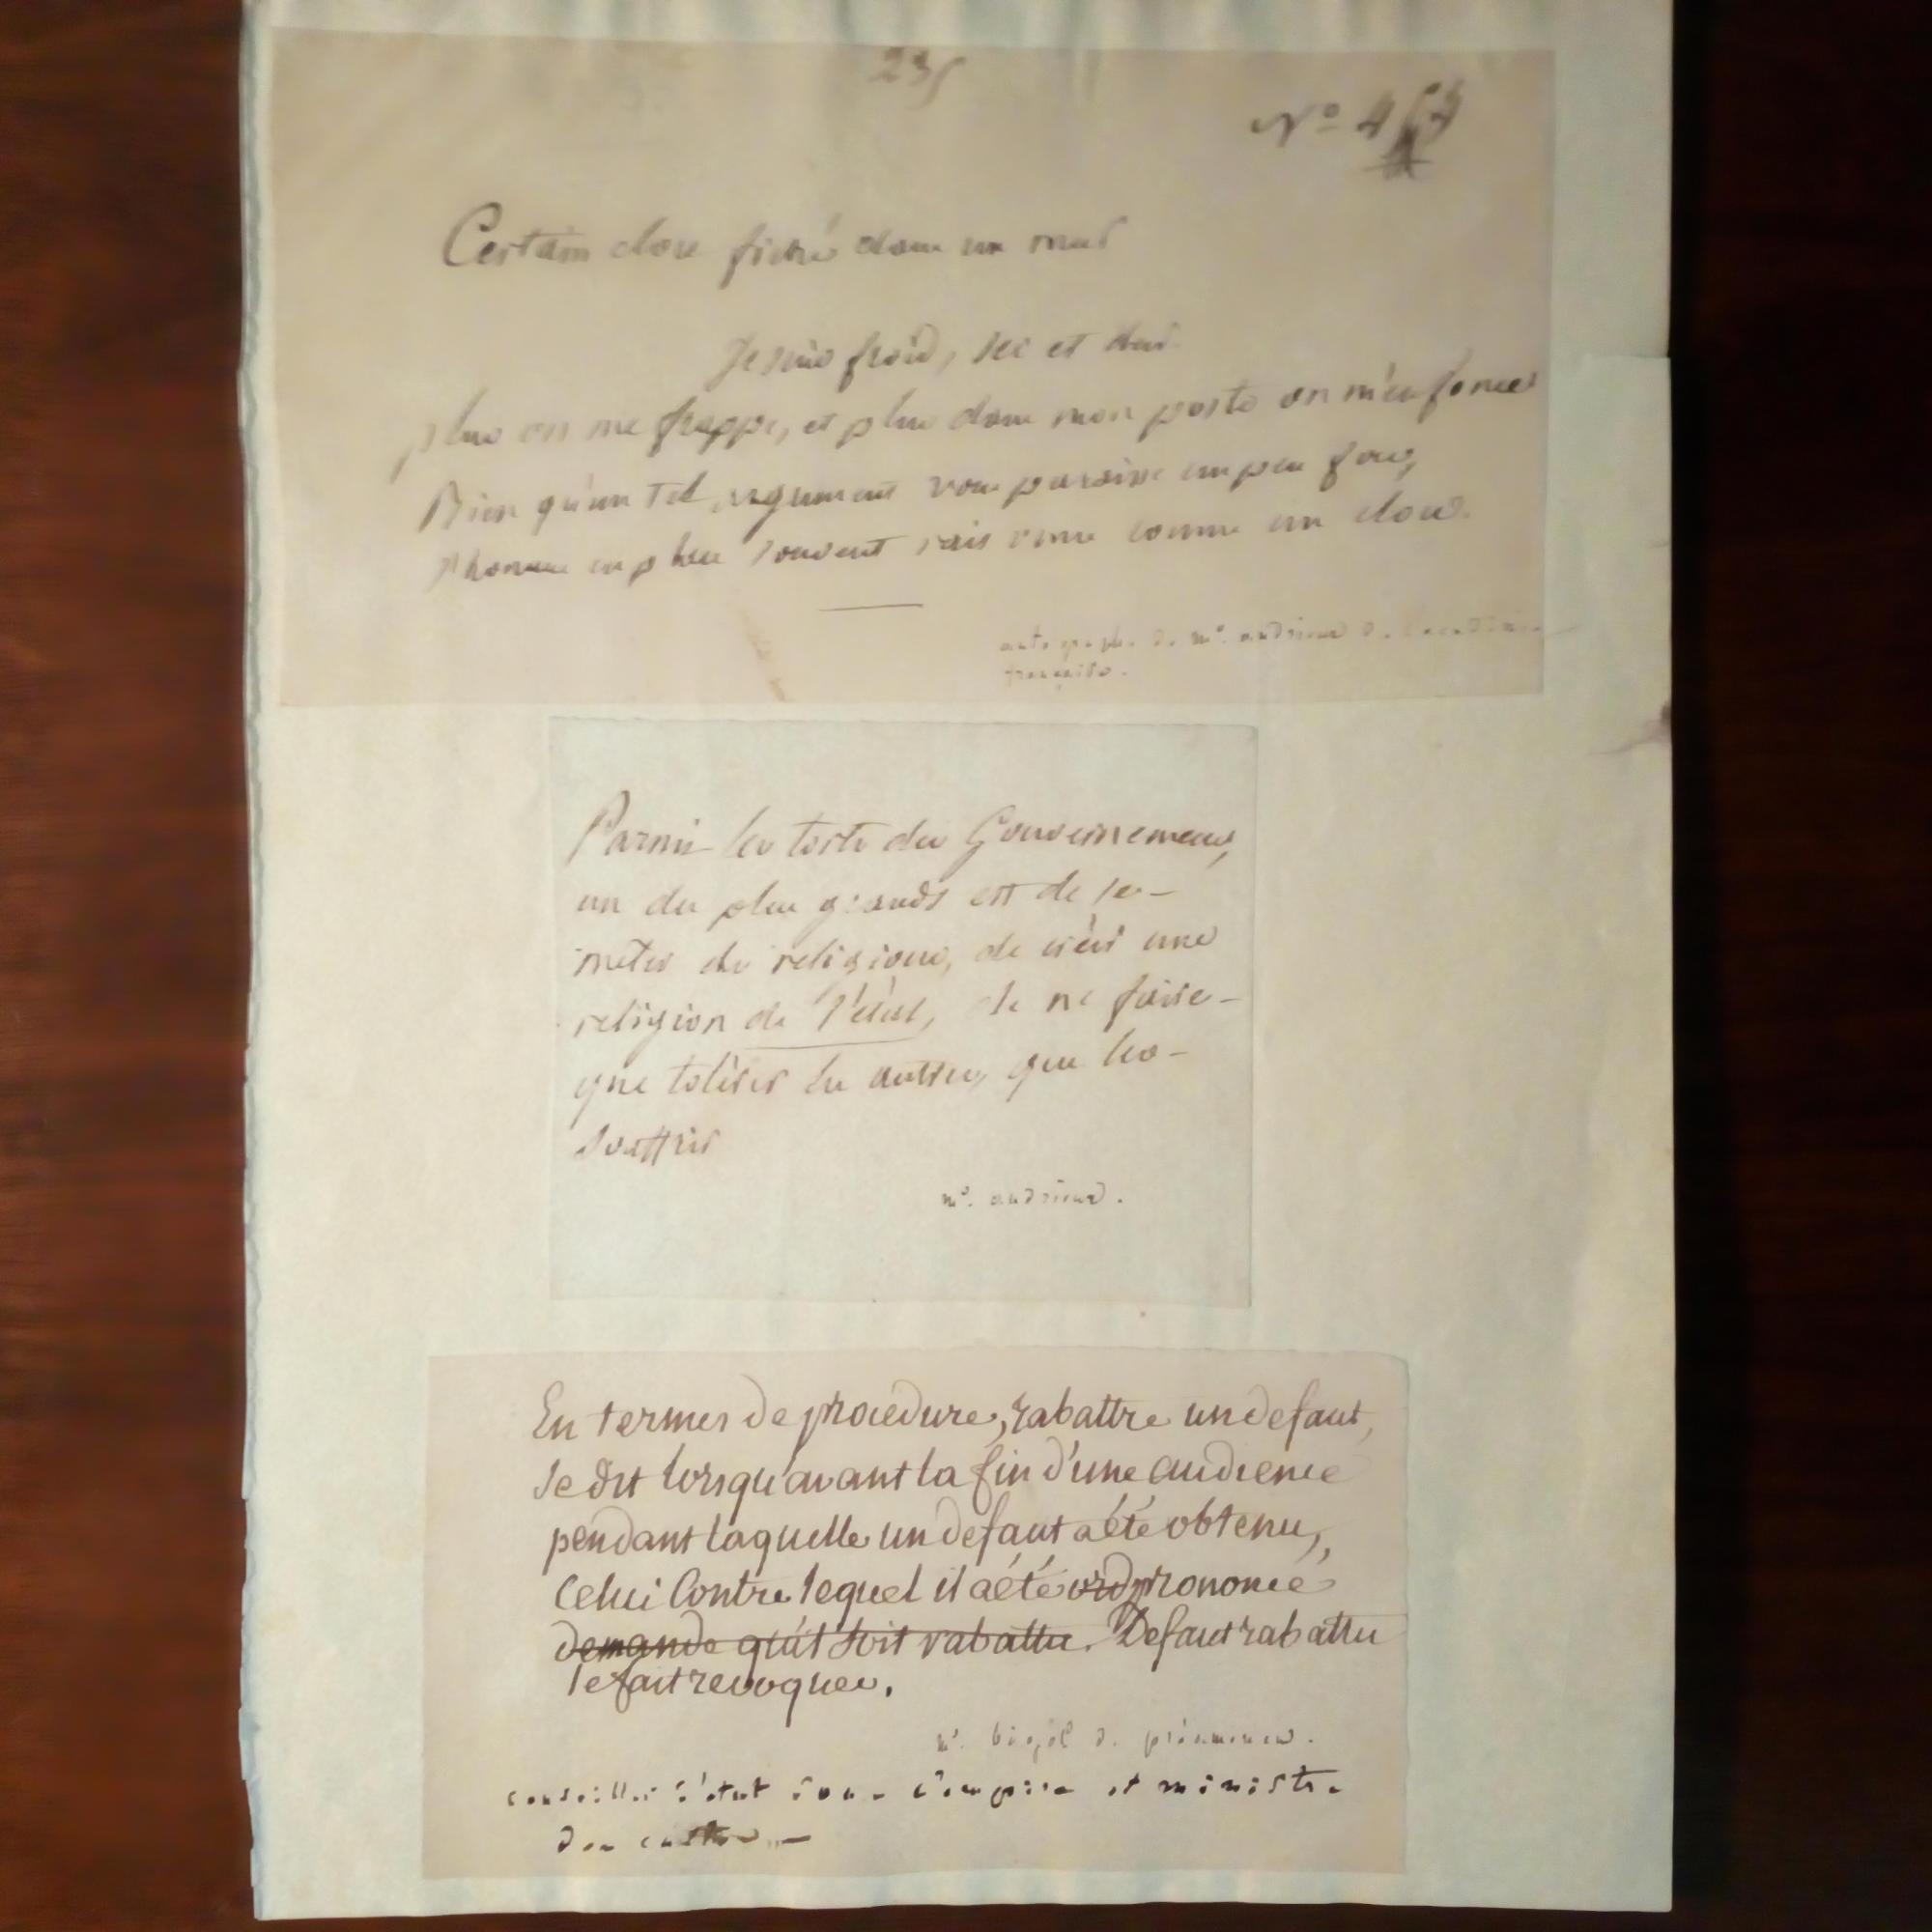 235
N° 454
Certain clou fiché dans un mur
Je suis froid, sec et dur
plus on me frappe, et plus dans mon poste on m'enfonce
Bien qu'un tel argument vous paraisse un peu fou,
l'homme en place souvent comme un clou.
autographe de mr. andrieux de l'academie
française.
Parmi les torts des Gouvernemens,
un des plus grands est de se
mêler des religions, de créer une
religion de l'état, de ne faire
que tolérer les autres, que les
souffrir
mr. andrieux.
En termes de procédure, rabattre un defaut,
se dit lorsqu'avant la fin d'une audience
pendant laquelle un defaut a été obtenu,
Celui Contre lequel il a été ord prononcé
demande qu'il soit rabattu. Defaut rabattu
le fait revoquer.
mr. bigot de préameneu.
conseiller d'etat sous l'empire et ministre
des cultes